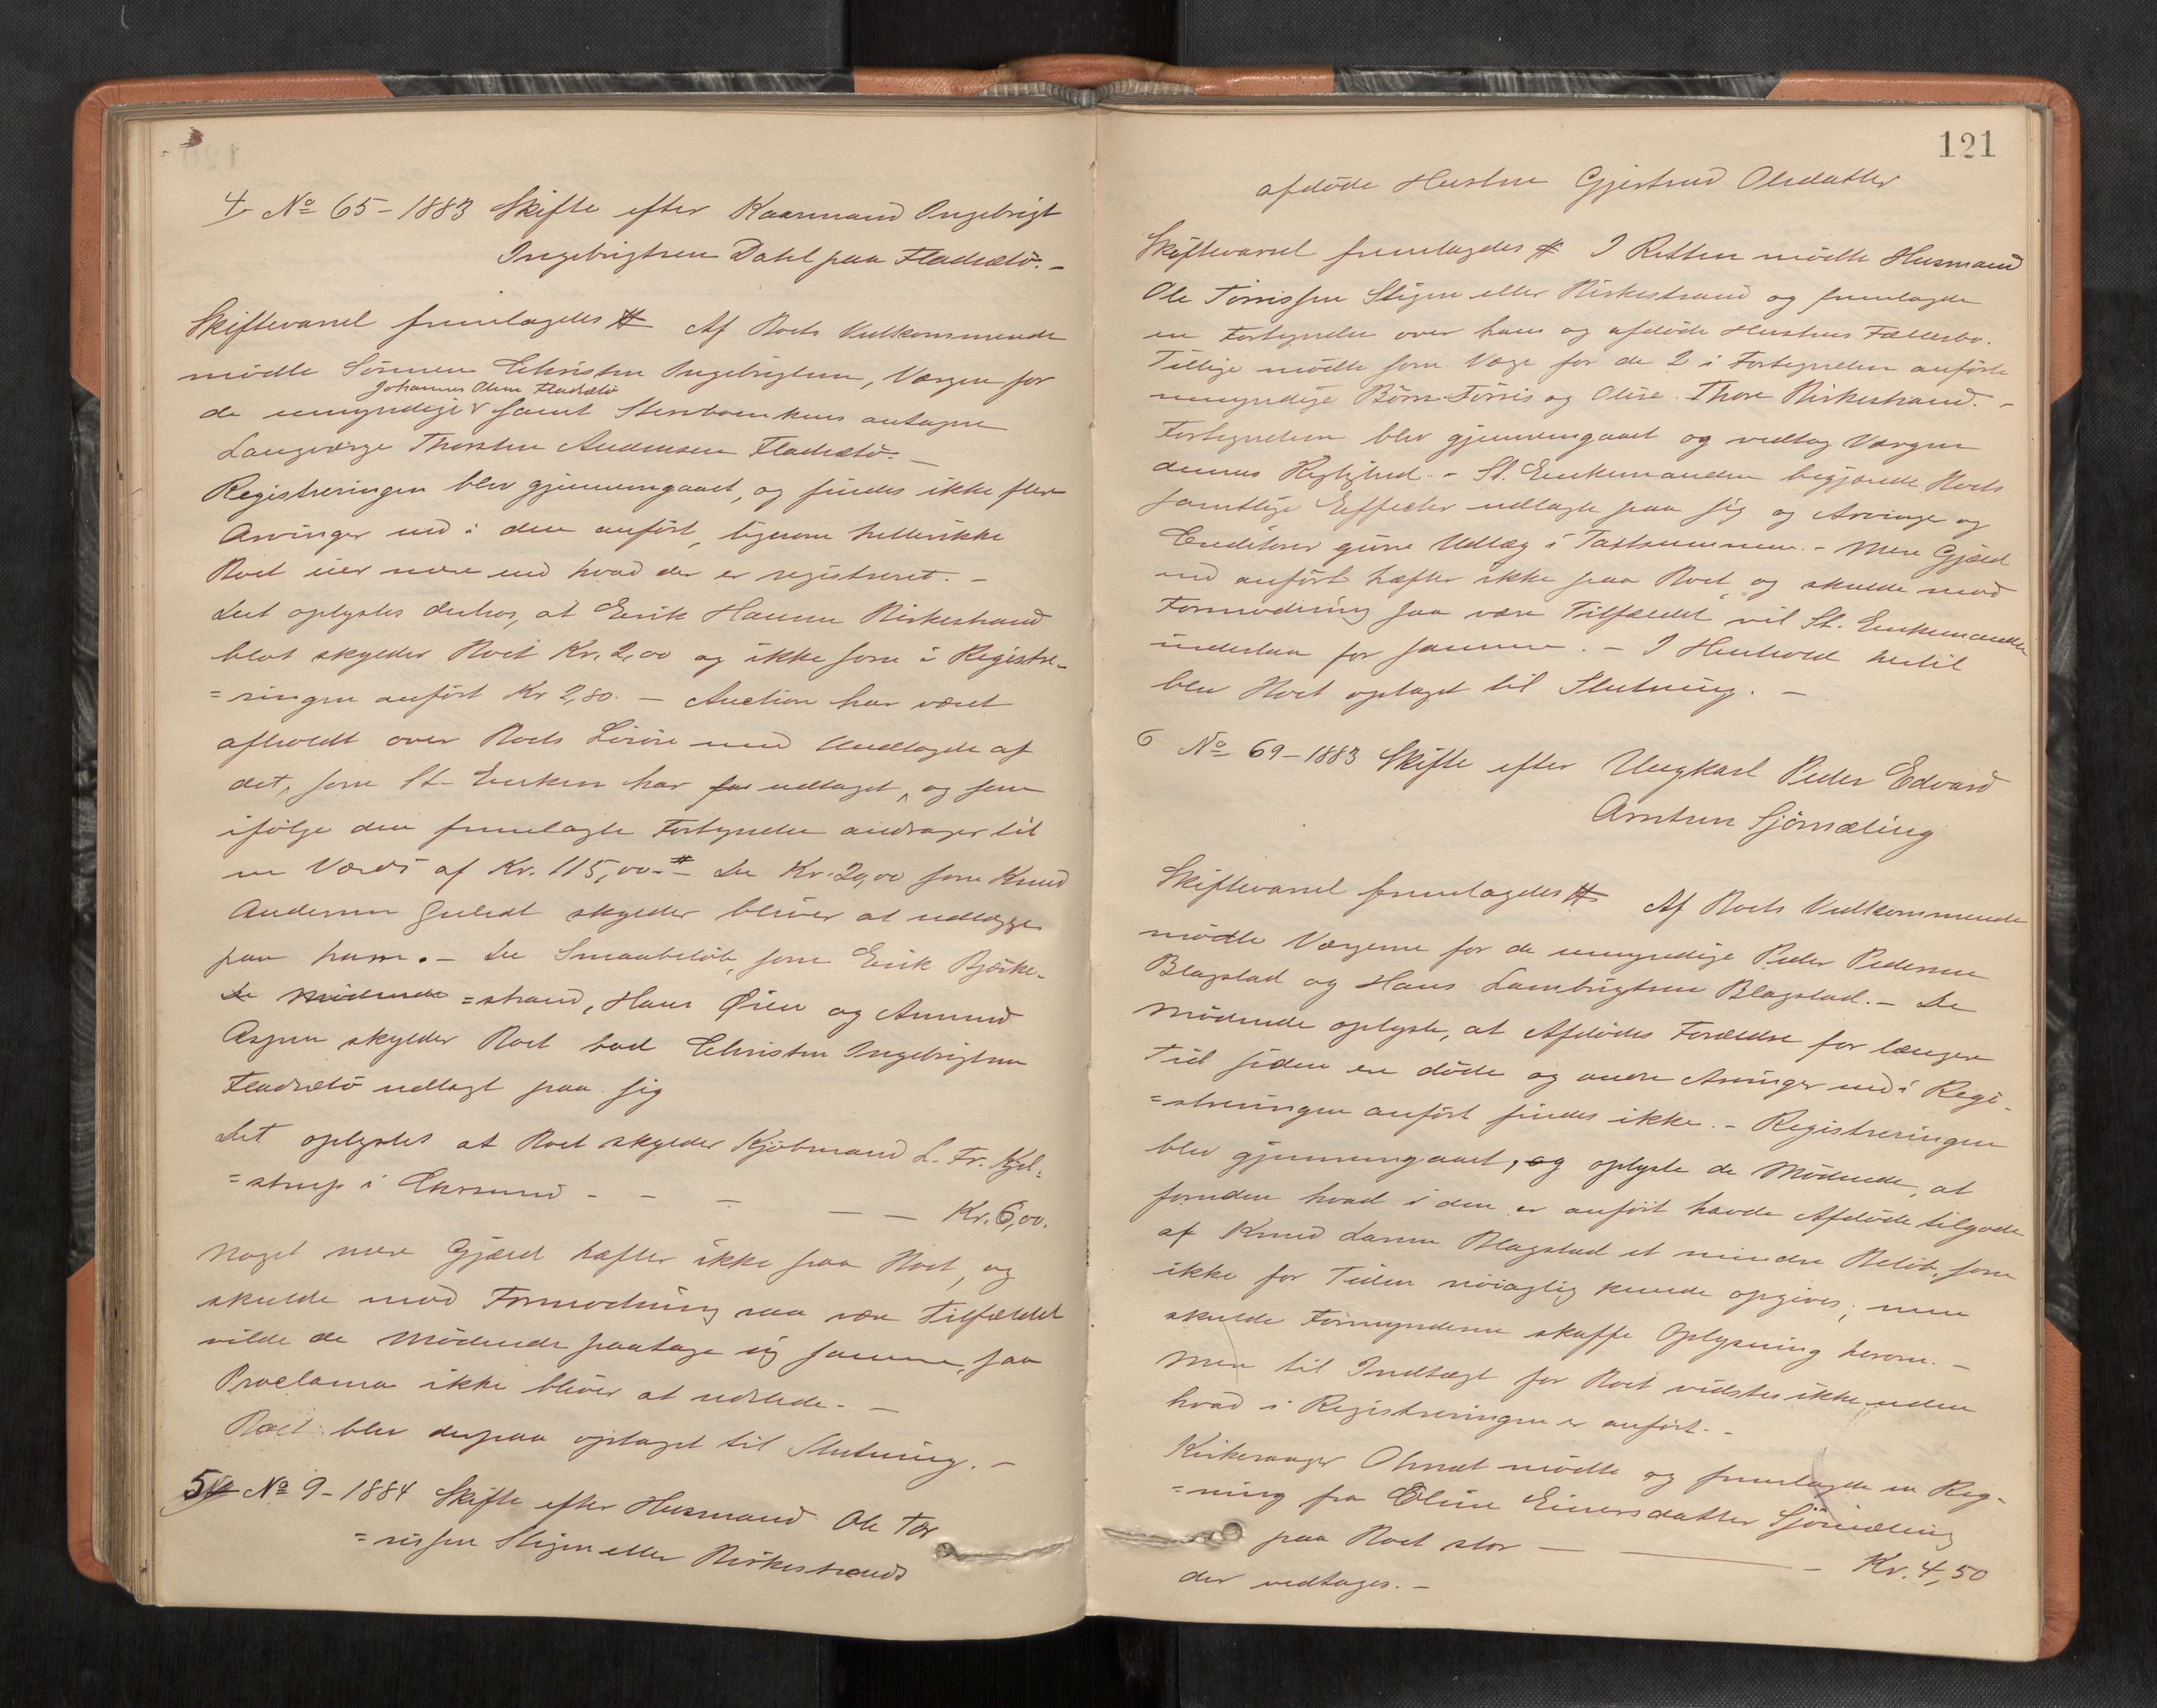 4 No 65-1883 Skifte efter Kaarmand Ingebrigt
Ingebrigtsen Dahl paa Fladsætö. –
Skiftevarsel fremlagdes # Af Boets Vedkommende
mödte Sönnen Christen Ingebrigtsen, Værgen for
Johannes Olsen Fladsætö
de umyndige samt Stervboenkens antagne
Laugværge Thorsten Andersen Fladsætö. –
Registreringen blev gjennemgaaet, og findes ikke flere
Arvinger end i den anfört, ligesom hellerikke
Boet eier mere end hvad der er registreret. –
Det oplystes derhos, at Erik Hansen Birkestrand
blot skylder Boet Kr. 2,00 og ikke som i Registre-
=ringen anfört Kr 2,80. – Auction har været
afholdt over Boets Lösöre med Undtagelse af
det, som St. Enken har udtaget, og som
ifölge den fremlagte Fortegnelse andrager til
en Værdi af Kr. 115,00. # – De Kr. 20,00 som Knud
Andersen skylder bliver at udlægge
paa ham. – De Smaabelöb, som Erik Bjørke-
De Mödende =strand, Hans Øien og Amund
Aspen skylder Boet bad Christen Ingebrigtsen
Fladsætö udlagt paa sig
Det oplystes at Boet skylder Kjöbmand L. Fr. Kjel-
=strup i Chrsund - - — — — Kr. 6,00.
Noget mere Gjæld hæfter ikke paa Boet, og
skulde mod Formodning saa være Tilfældet
vilde de Mödende paatage sig samme, saa
Proclama ikke bliver at udstede. –
Boet blev derpaa optaget til Slutning. –
5 No 9-1884 Skifte efter Husmand Ole Tör
=rissen Stigen eller Birkestrands
121
afdöde Hustru Gjertrud Olsdatter
Skiftevarsel fremlagdes # I Retten mödte Husmand
Ole Törrissen Stigen eller Birkestrand og fremlagde
en Fortegnelse over hans og afdöde Hustrus Fællesbo.
Tillige mödte som Værge for de 2 i Fortegnelsen anförte
umyndige Börn Törris og Oline Thore Birkestrand. –
Fortegnelsen blev gjennemgaaet og vedtog Værgen
dennes Rigtighed. – St. Enkemanden begjærede Boets
samtlige Effecter udlagte paa sig og Arvinger og
Creditorer givne Udlæg i Taxtsummen. – Mere Gjæld
end anfört hæfter ikke paa Boet, og skulde mod
Formodning saa være Tilfældet vil St. Enkemanden
indestaa for samme. – I Henhold hertil
blev Boet optaget til Slutning. –
6 No 69-1883 Skifte efter Ungkarl Peder Edvard
Arntsen Sjömæling
Skiftevarsel fremlagdes # Af Boets Vedkommende
mödte Værgerne for de umyndige Peder Pedersen
Blagstad og Hans Lambrigtsen Blagstad. – De
Mödende oplyste, at Afdödes Forældre for længere
Tid siden ere döde og andre Arvinger end i Regi-
=streringen anfört findes ikke. – Registreringen
blev gjennemgaaet, og oplyste de Mödende, at
foruden hvad i den er anfört havde Afdöde tilgode
af Knud Larsen Blagstad et mindre Belöb, som
ikke for Tiden nöiagtig kunde opgives; men
skulde Formynderne skaffe Oplysning herom. –
Mere til Indtægt for Boet vidstes ikke, uden
hvad i Registreringen er anfört. –
Kirkesanger mödte og fremlagde en Reg-
=ning fra Eline Einersdatter Sjömæling
paa Boet stor — — – Kr. 4,50
der vedtages. –